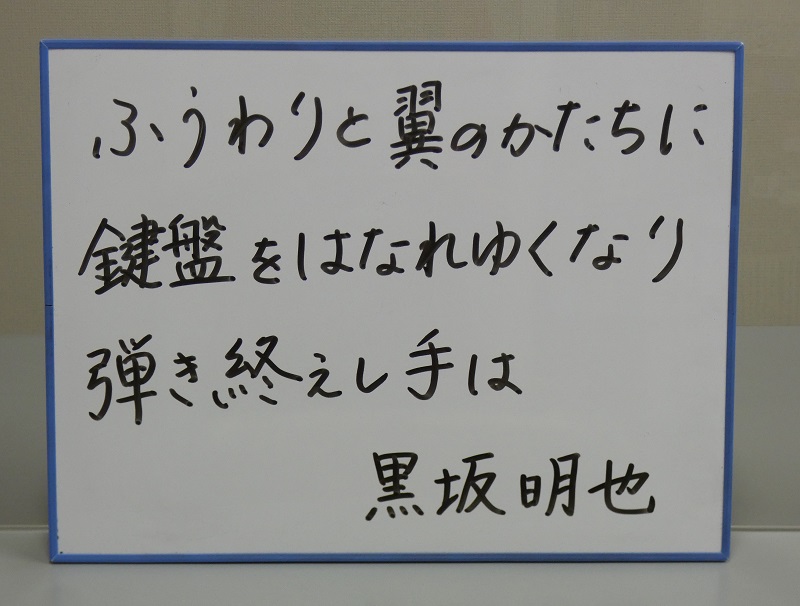 ふうわりと翼のかたちに
鍵盤をはなれゆくなり
弾き終えし手は
黒坂明也